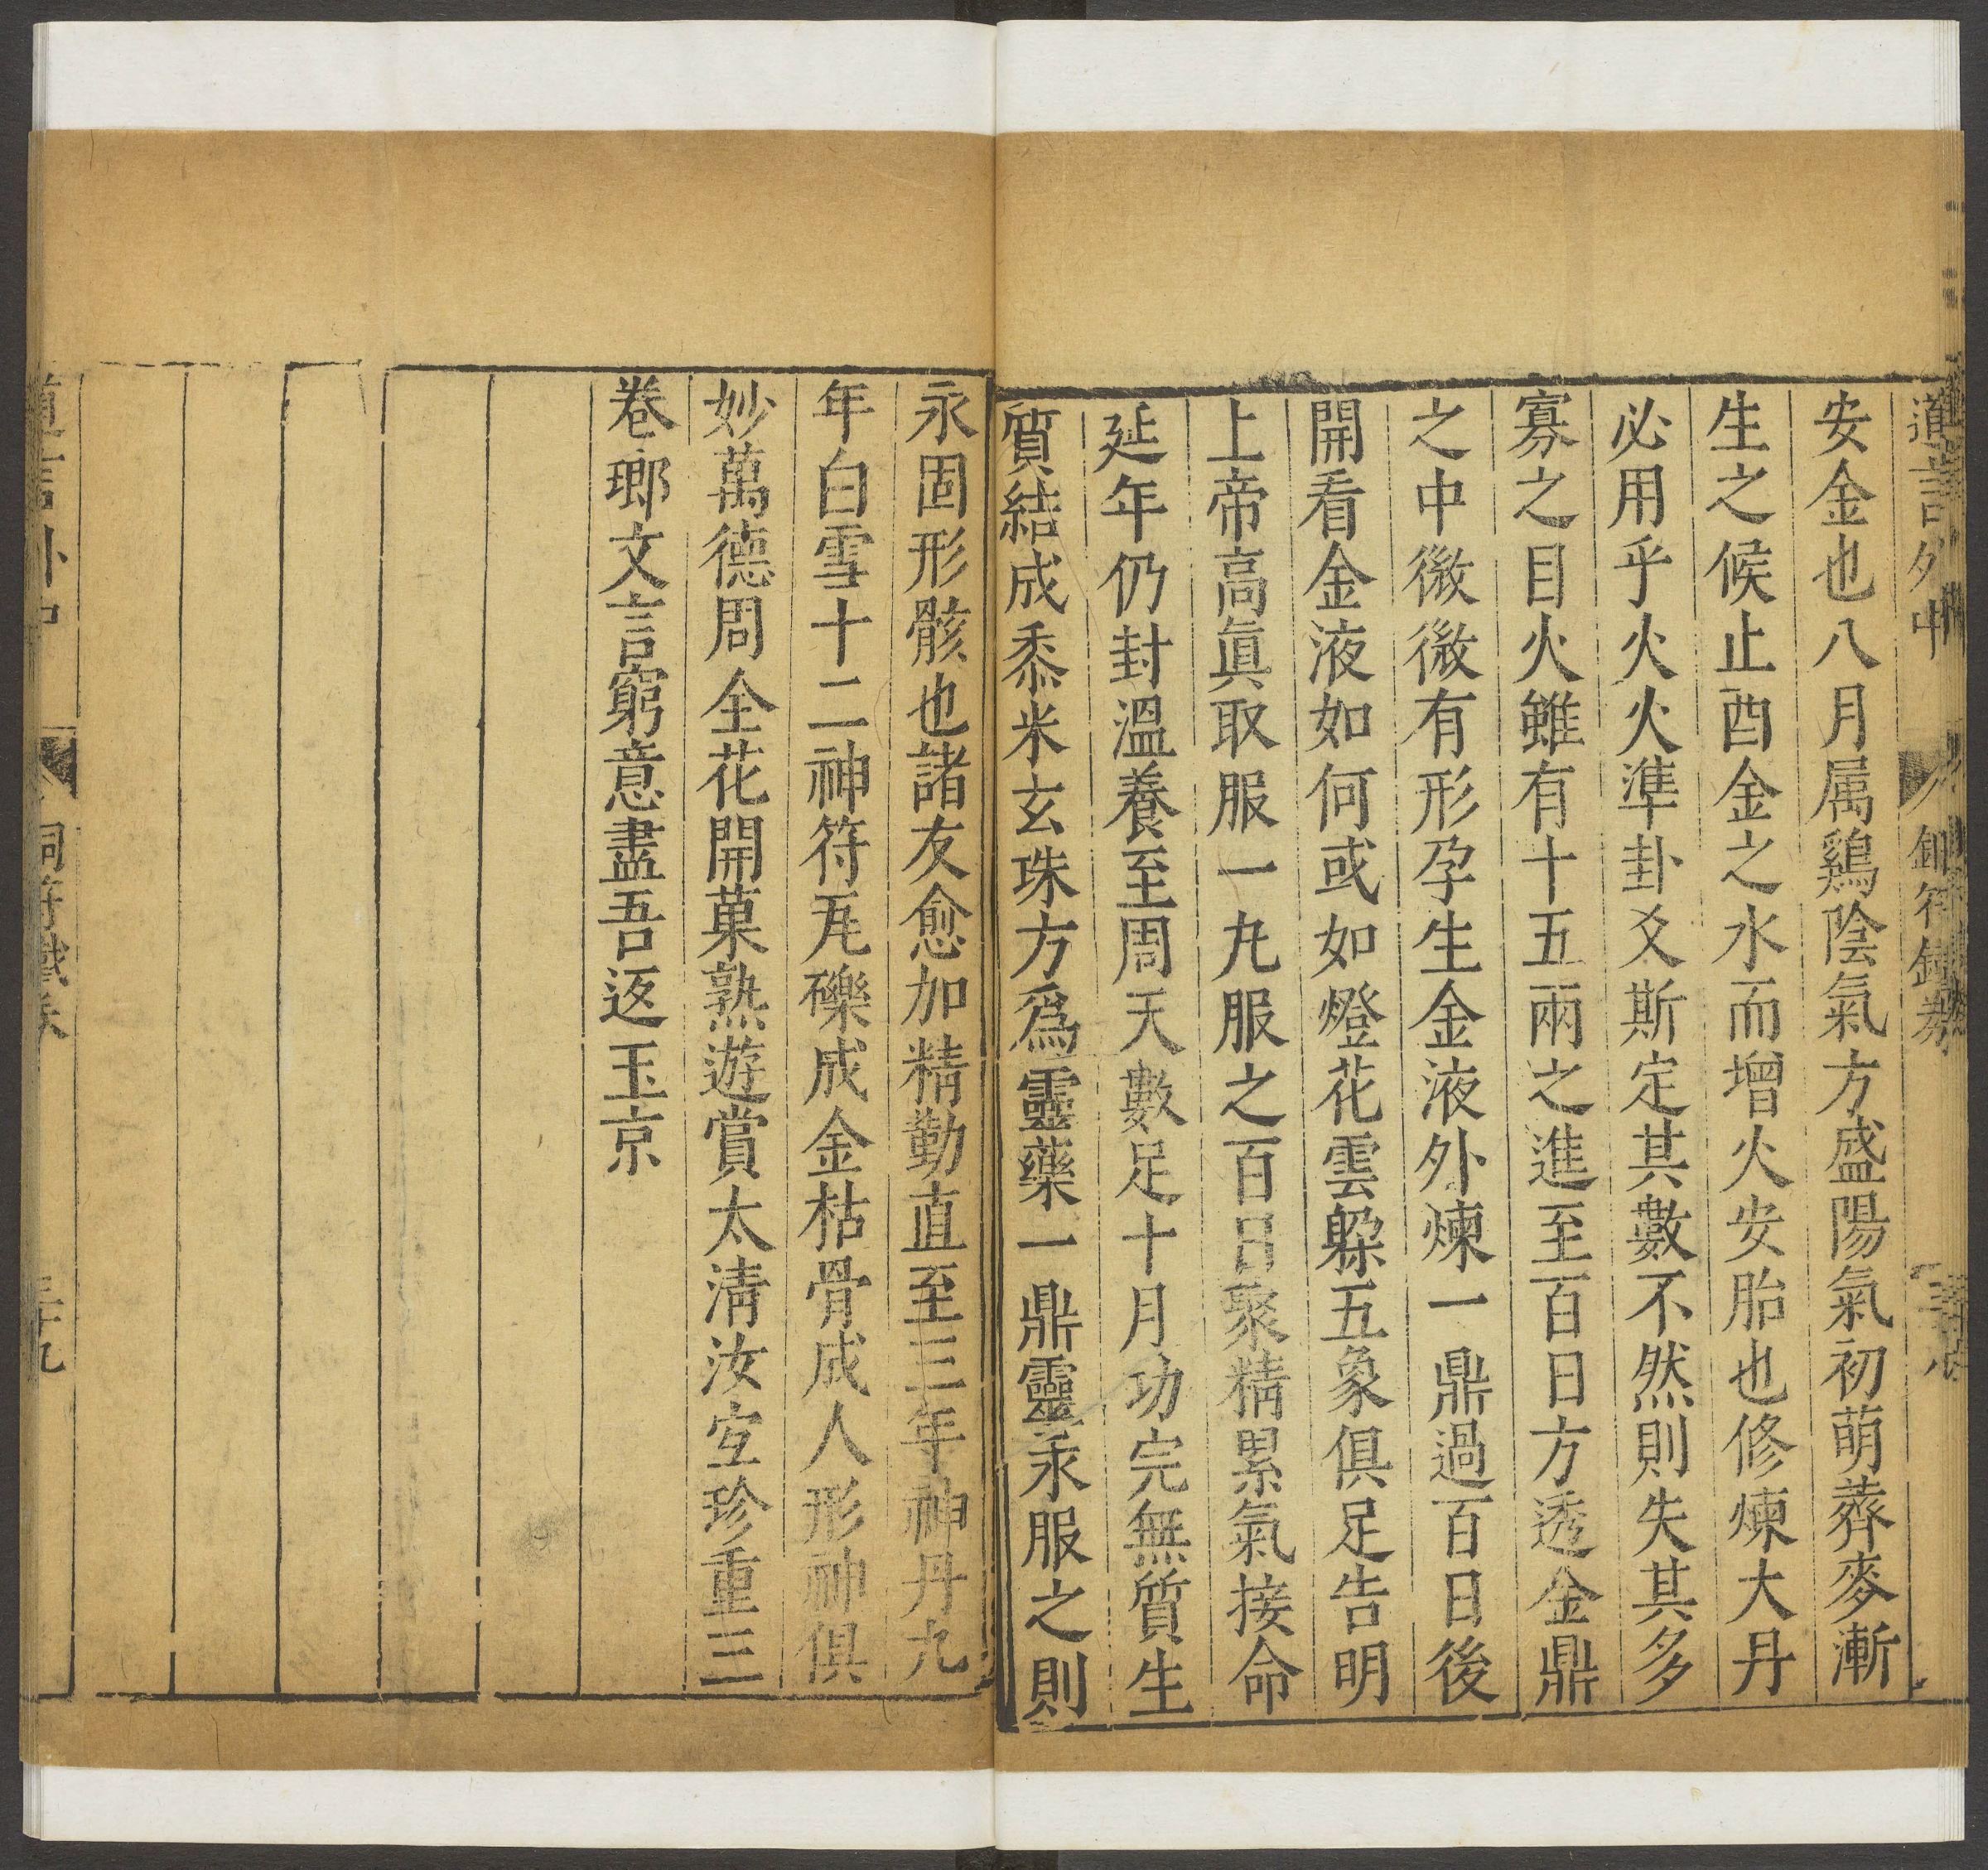 安金也八月属鷄陰氣方盛陽氣初萌薺麥漸
生之候止酉金之水而增火安胎也修煉大丹
必用乎火火準卦爻斯定其數不然則失其多
寡之目火雖有十五兩之進至百日方透金鼎
之中微微有形孕生金液外煉一鼎過百日後
開看金液如何或如燈花雲躲五象俱足告明
上帝高眞取服一九服之百日聚精累氣接命
延年仍封溫養至周天數足十月功完無質生
質結成黍米玄珠方爲靈藥一鼎靈汞服之則
永固形骸也諸友愈加精勤直至三年神丹九
年白雪十二神符瓦礫成金枯骨成人形神俱
妙萬德周全花開菓熟遊賞太清汝宜珍重三
卷瑯文言窮意盡吾返玉京